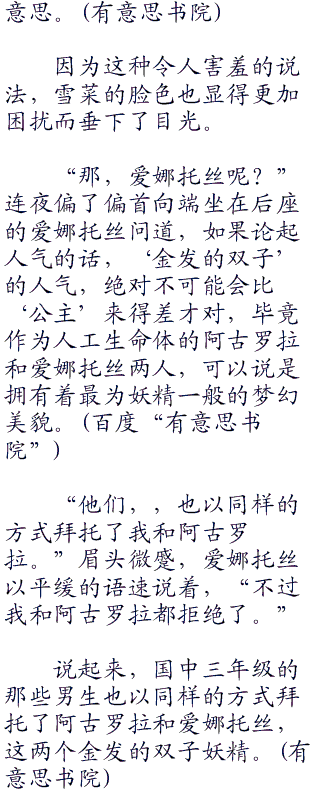 意思。(有意思书院)
因为这种令人害羞的说
法，雪菜的脸色也显得更加
困扰而垂下了目光。
“那，爱娜托丝呢？”
连夜偏了偏首向端坐在后座
的爱娜托丝问道，如果论起
人气的话，‘金发的双子’
的人气，绝对不可能会比
‘公主’来得差才对，毕竟
作为人工生命体的阿古罗拉
和爱娜托丝两人，可以说是
拥有着最为妖精一般的梦幻
美貌。(百度“有意思书
院”)
“他们，，也以同样的
方式拜托了我和阿古罗
拉。”眉头微蹙，爱娜托丝
以平缓的语速说着，“不过
我和阿古罗拉都拒绝了。”
说起来，国中三年级的
那些男生也以同样的方式拜
托了阿古罗拉和爱娜托丝，
这两个金发的双子妖精。(有
意思书院)